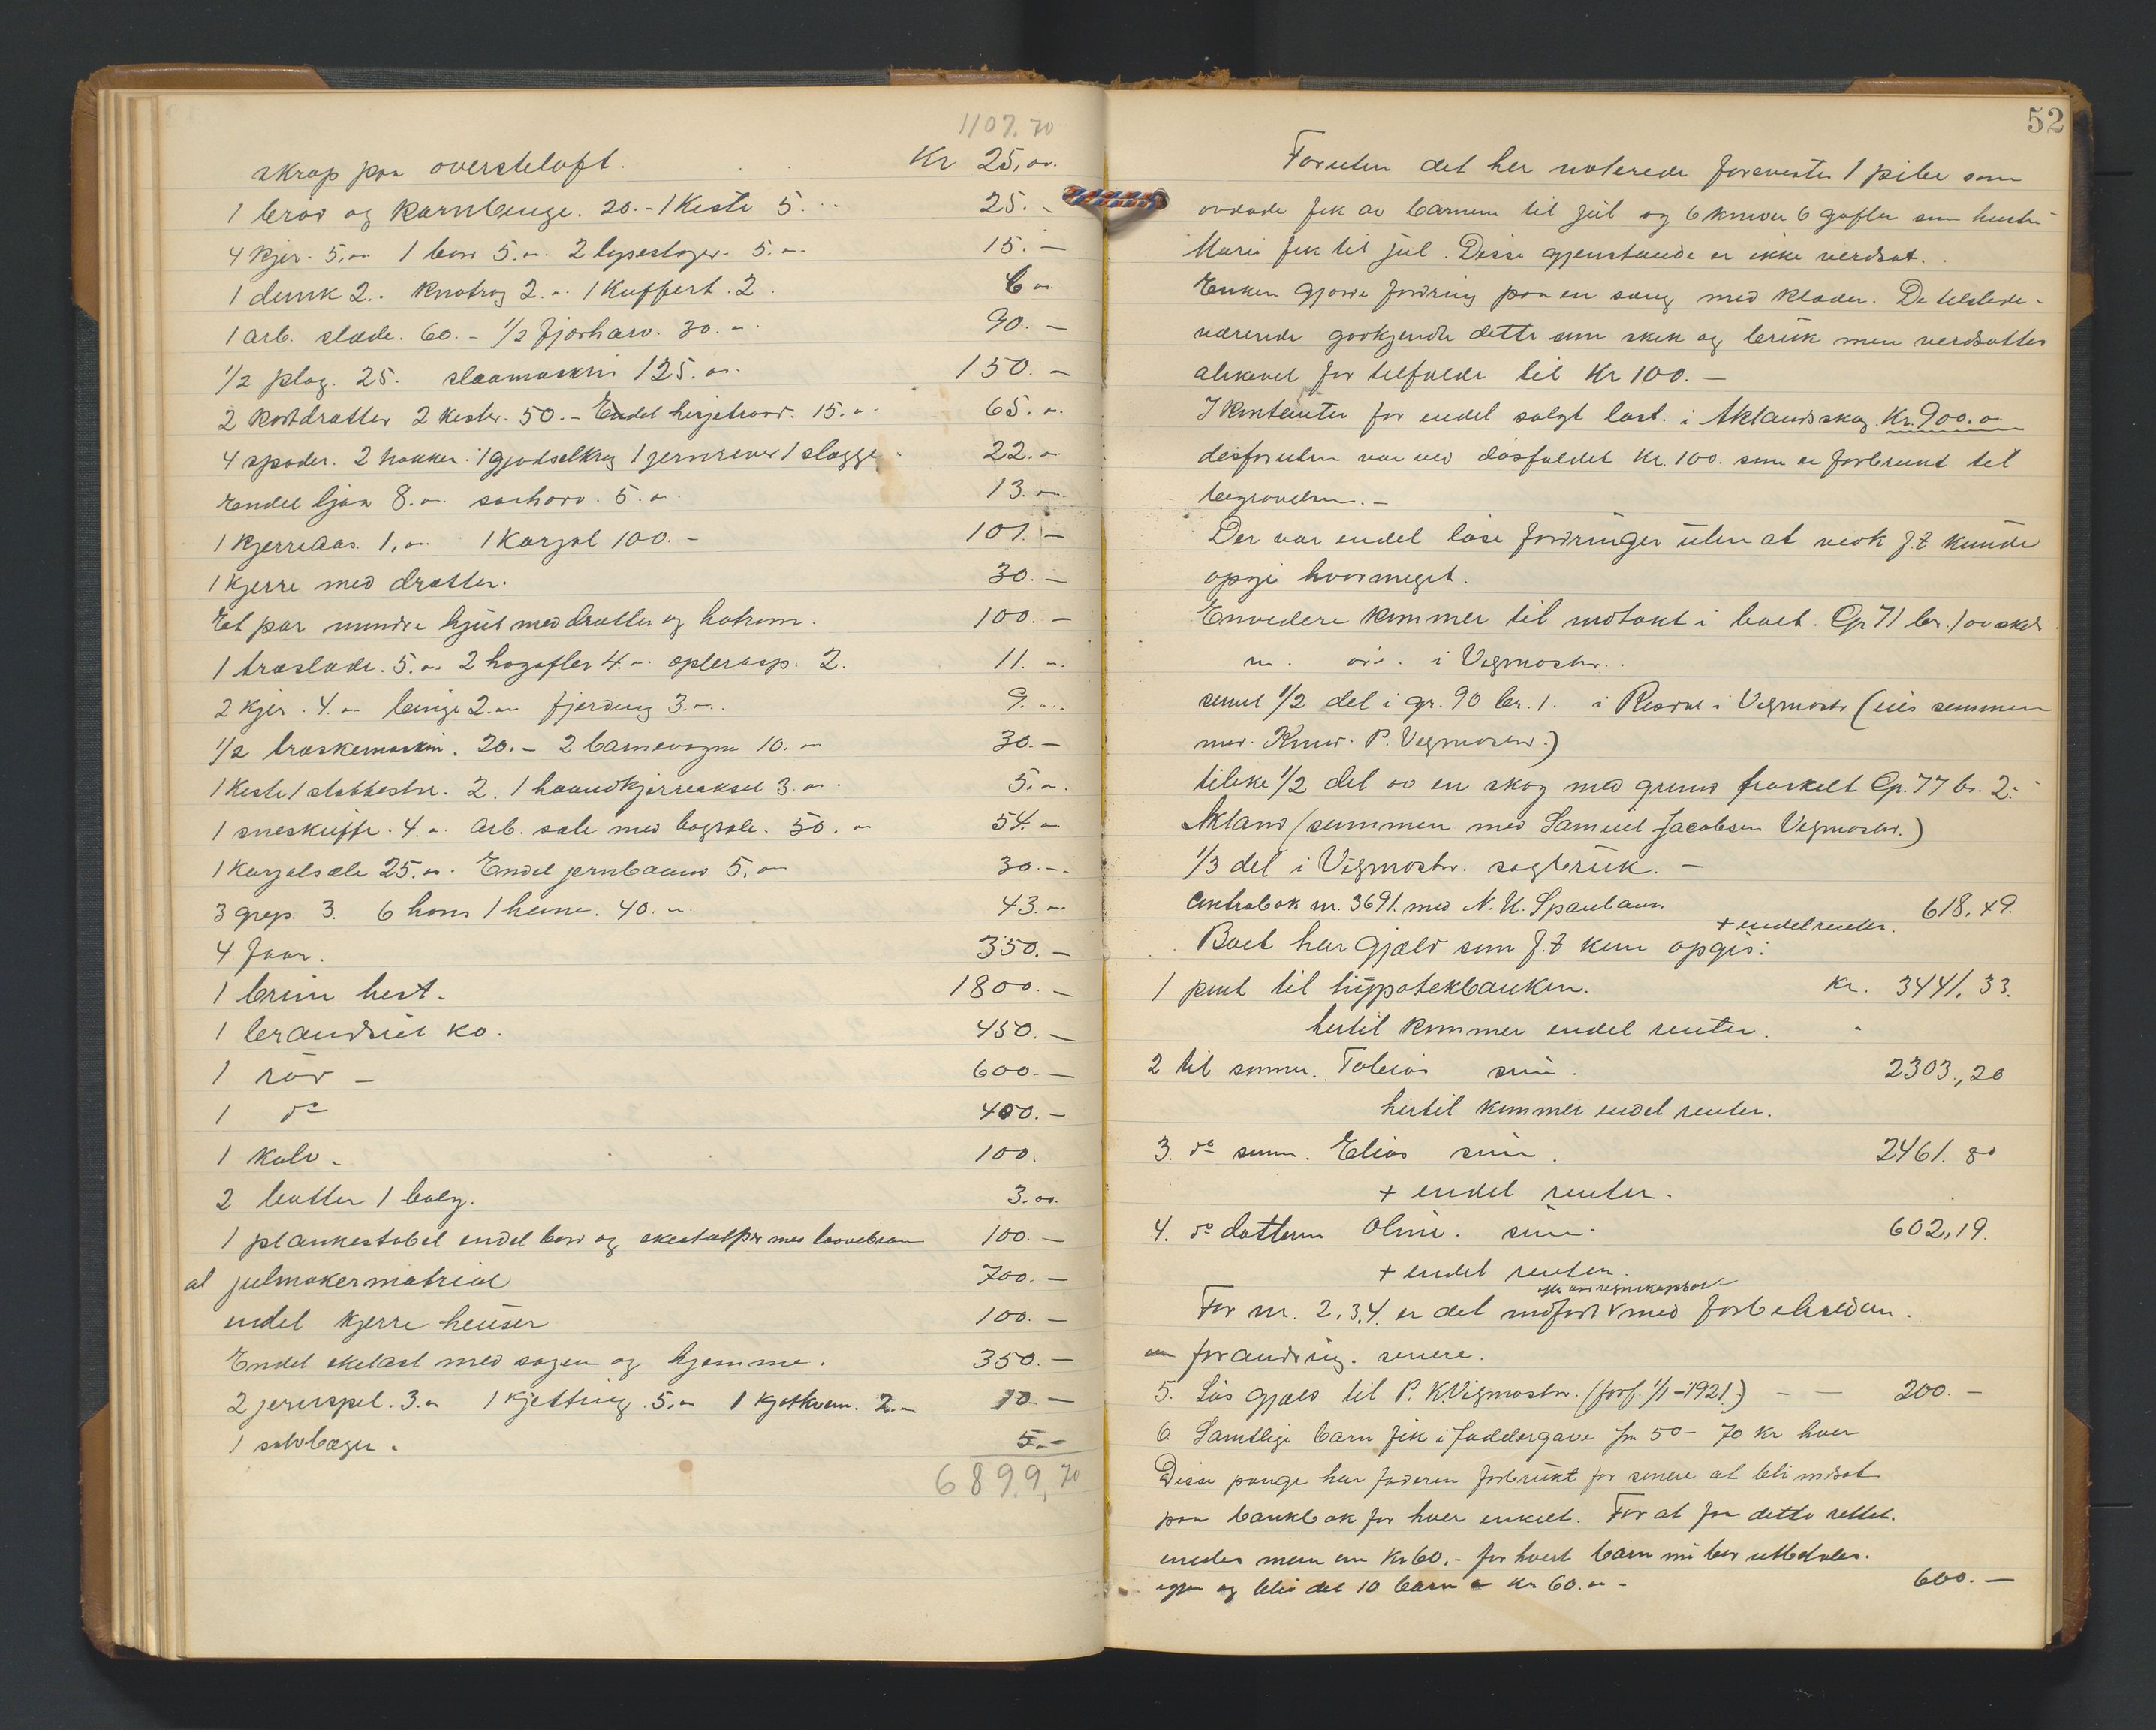 1107.70
skrap paa øversteloft. Kr 25,00.
1 brød og kornbinge. 20.- 1 Kiste 5. 25.-
4 kjer. 5,00 1 bor 5.00. 2 lysestager. 5.00 15.-
1 dunk 2.- Knatrog 2.- 1 Kuffert. 2. 6 00
1 arb. slæde. 60.- 1/2 fjørharv. 30.- 90.-
1/2 plog. 25. slaamaskin 125.00. 150.-
2 2 Kister. 50.- Endel hesjetraad. 15.- 65.-
4 spader. 2 hakker. 1 gjødselkrog 1 jernrever 1 slægge 22.-
Endel ljaa 8.00. saahorv. 5.00. 13.00
1 Kjerreaas. 1,00. 1 Karjol 100.- 101.-
1 Kjerre med drætter. 30.-
Et par mindre hjul med drætter og 100.-
1 træslæde. 5.00. 2 høgafler 4.00. 2. 11.-
2 kjer. 4.00 binge 2.00 fjerding 3.00. 9.-
1/2 træskemaskin. 20.- 2 barnevogne 10.00 30.-
1 Kiste 1 2. 1 haandkjerreaksel 3.00. 5.00.
1 sneskuffe. 4.00. Arb. sæle med bogsæle. 50.00 54.00
1 Karjolsæle 25.00. Endel jernbaand 5.00 30.--
3 grep. 3. 6 høns 1 hane. 40.00. 43.00
4 Faar. 350.-
1 brun hest. 1800.-
1 brandsiet ko. 450.-
1 rød - 600.-
1 do 400.-
1 kalv. 100.
2 bøtter 1 balg. 3.00.
1 plankestabel endel bord og med 100.-
al julmakermatrial 700.-
endel kjerre 100.-
Endel ekelast med sagen og hjemme. 350.-
2 jernspel. 3.00 1 Kjetting 5.00 1 Kjøtkvern. 2.00 10.-
1 sølvbæger. 5.-
6899,70
52
Foruten det her noterede forevistes 1 pibe som
avdøde fik av barnene til jul og 6 kniver 6 gafler som hustru
Marie fik til jul. Disse gjenstande er ikke verdsat.
Enken gjorde fordring paa en sæng med klæder. De tilstede-
værende godkjendte dette som skik og bruk men verdsattes
alikevel for tilfælde til Kr 100.-
I Kontanter for endel solgt last. i Aklandsskog. Kr. 900.00
desforuten var ved dødsfaldet Kr. 100. som er forbrukt til
begravelsen.-
Der var endel løse fordringer uten at vedk f.t kunde
opgi hvormeget.
Envidere kommer til indtækt i boet. Gr 71 br. 1 av skyld
m. øre. i Vigmostad.
samt 1/2 del i gr. 90 br. 1. i i Vigmostad (eies sammen
med. Knud. P. Vigmostad.)
tilike 1/2 del av en skog med grund fraskilt Gr. 77 br. 2.
Akland (sammen med Samuel Jacobsen Vigmostad.)
1/3 del i Vigmostad. sagbruk.-
Contrabok nr. 3691. med N. U. Sparebank. 618.49.
+ endel renter.
Boet har gjæld som f.t kun opgis:
1 pant til hypotekbanken. Kr. 3441.33.
hertil kommer endel renter.
2 til sønnen. Tobias sum. 2303,,20
hertil kommer endel renter.
3. do sønn. Elias sum. 2461.80
+ endel renter.
4. do datteren Oline. sum. 602,19.
+ endel renter.
efter
For nr. 2.3.4. er det indført v med forbeholden.
om forandring. senere.
5. Løs gjæld til P. K. Vigmostad. (forf. 1/1-1921.) - - 200.-
6. Samtlige barn fik i faddergave fra 50- 70 kr hver
Disse penge har faderen forbrukt for senere at bli indsat
paa bankbok for hver enkelt. For at faa dette rettet.
enedes man om Kr 60.- for hvert barn nu bør utbetales.
igjen og blir det 10 barn a Kr 60.00 - 600.-